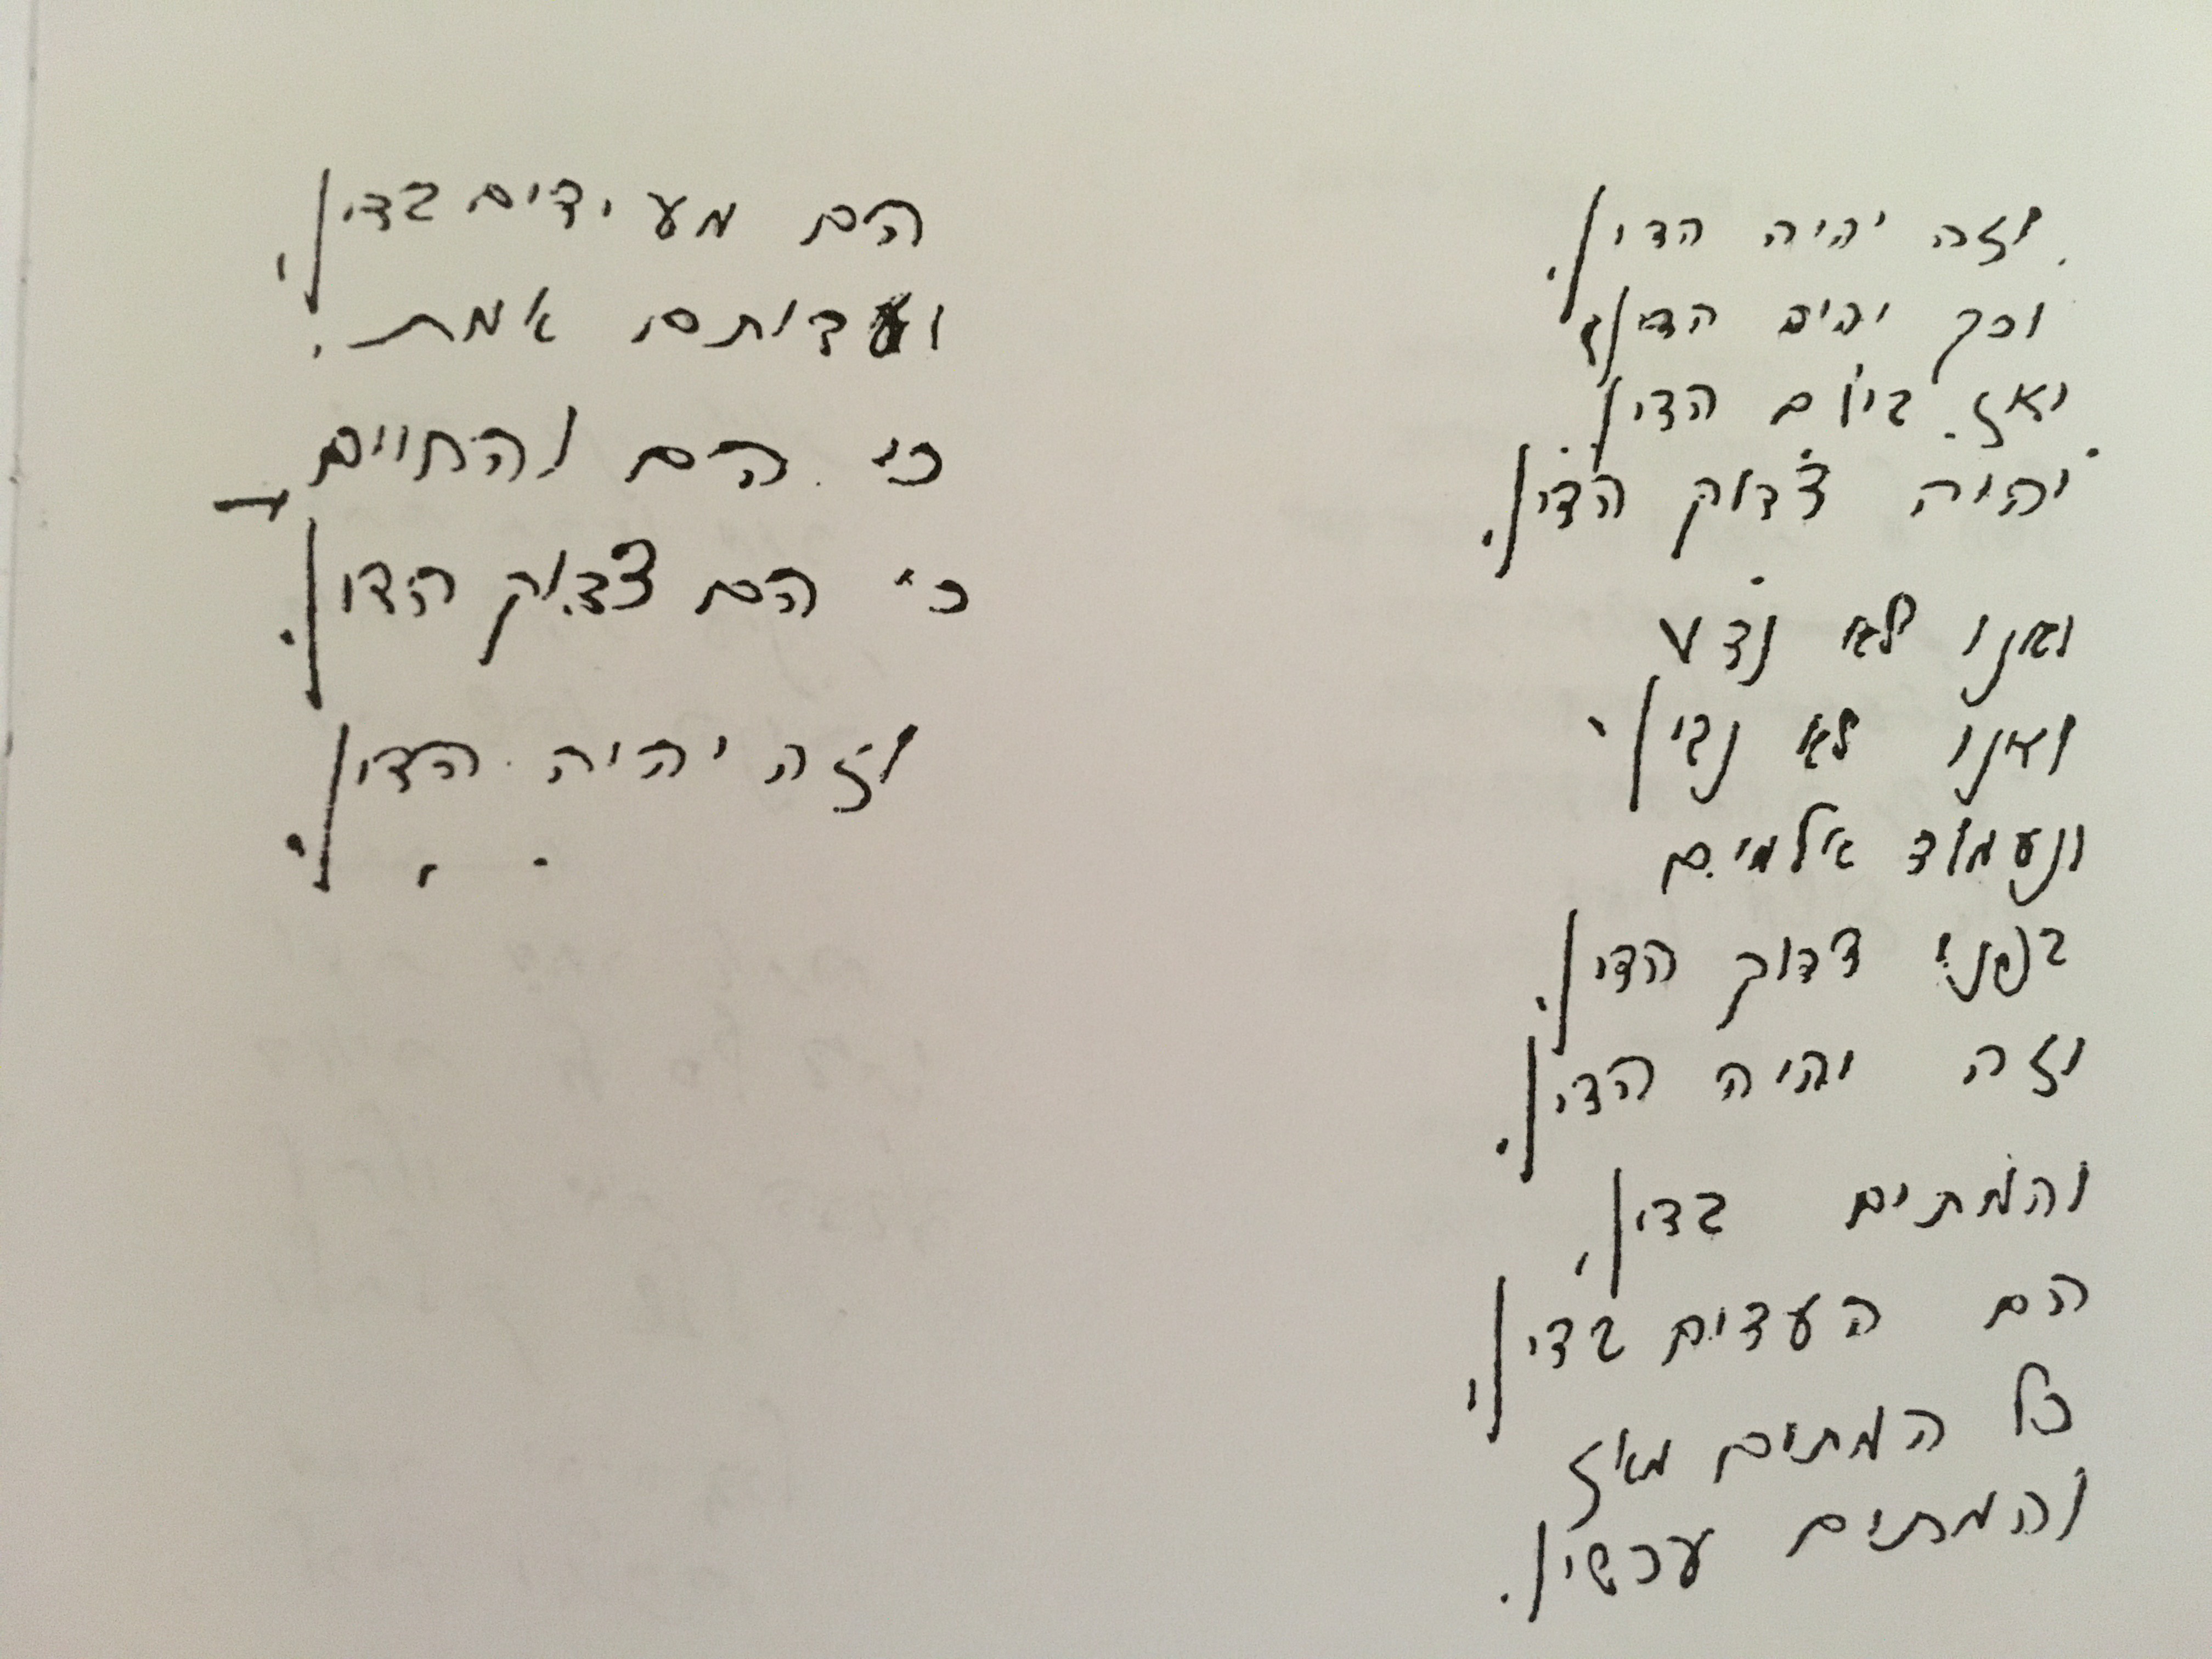 וזה יהיה הדין.
וכך יהיה הדין,
ואז ביום הדין
יהיה צדוק הדין.
ואנו לא נדע
ואנו לא נבין
ונעמוד אילמים
בפני צדוק הדין.
וזה יהיה הדין.
והמתים בדין,
הם העדים בדין,
כל המתים מאז
והמתים עכשיו.
הם מעידים בדין,
ועדותם אמת.
כי הם והחיים –
כי הם צדוק הדין.
וזה יהיה הדין.